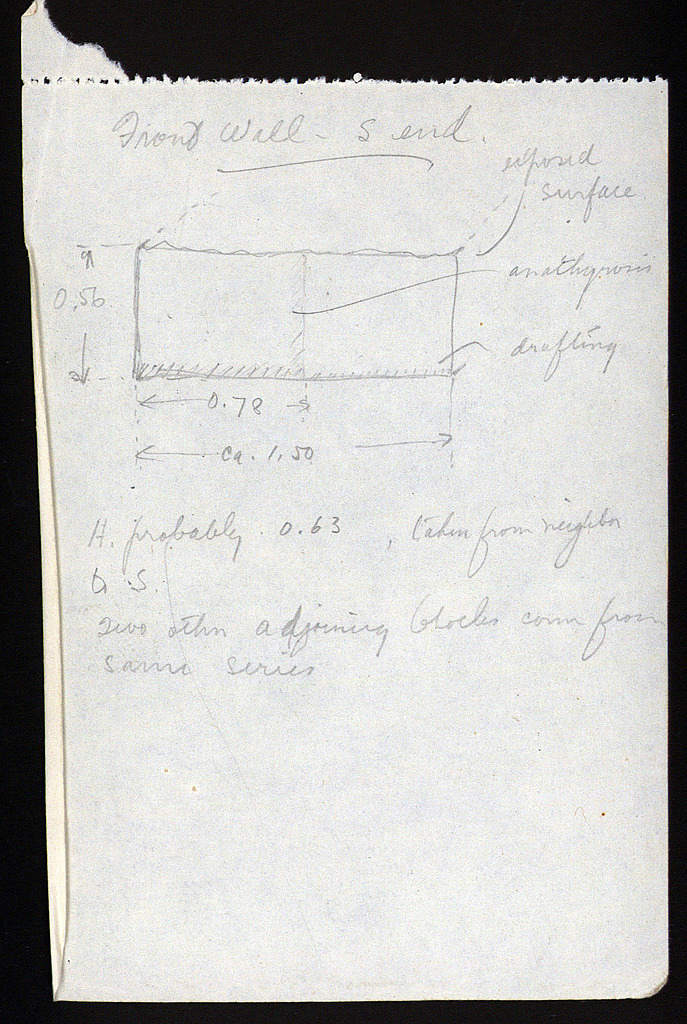 Front Wall - S end.
exposed
surface
anathyrosis
0.56
drafting
0.78
ca. 1.50
H. probably 0.63, taken from neighbor
to S.
Two other adjoining blocks come from
same series